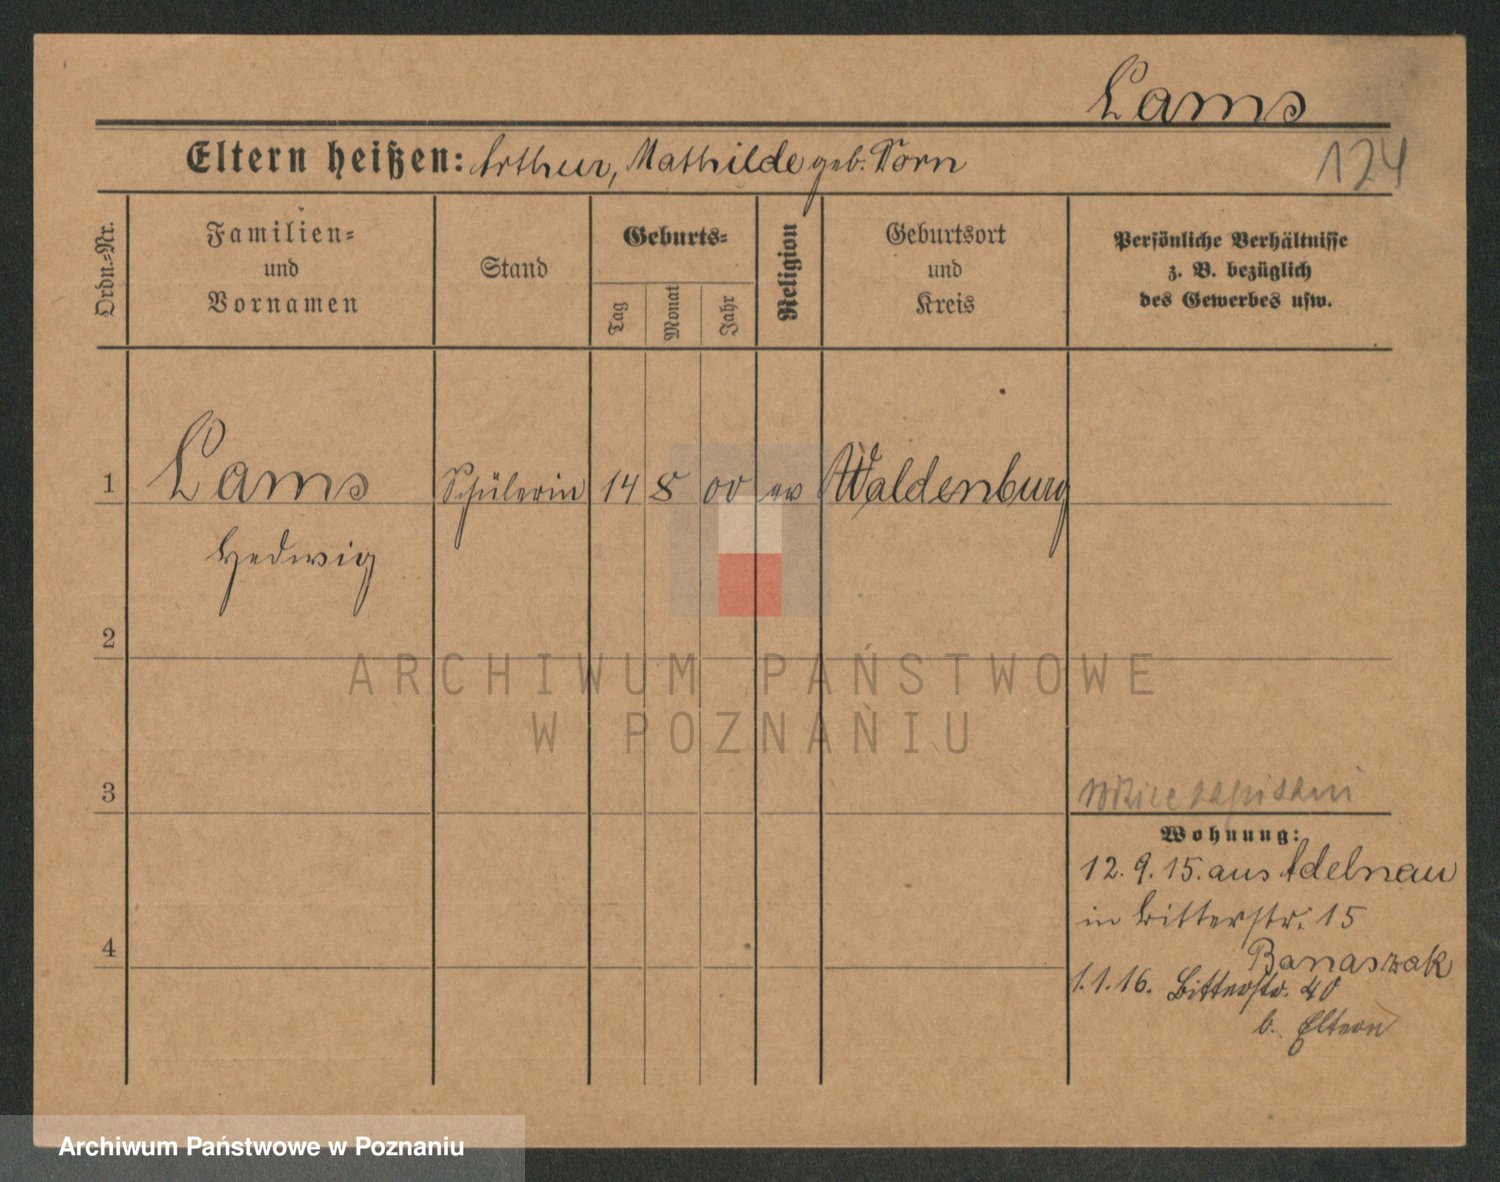 Lams
Eltern heißen: Arthur, Mathilde geb. Dorn
124
Ordn.-Nr.
Familien-
und
Vornamen
Stand
Geburts-
Tag
Monat
Jahr
Religion
Geburtsort
und
Kreis
Persönliche Verhältnisse
z. B. bezüglich
des Gewerbes usw.
1 Lams Schülerin 14 8 00 ev Waldenburg
Hedwig
2
3
Wohnung:
12. 9. 15. aus Adelnau
in Bitterstr. 15
Banaszak
4
1. 1. 16. Bitterstr. 40
b. Eltern
ARCHIWUM PAŃSTWOWE
W POZNANIU
Archiwum Państwowe w Poznaniu